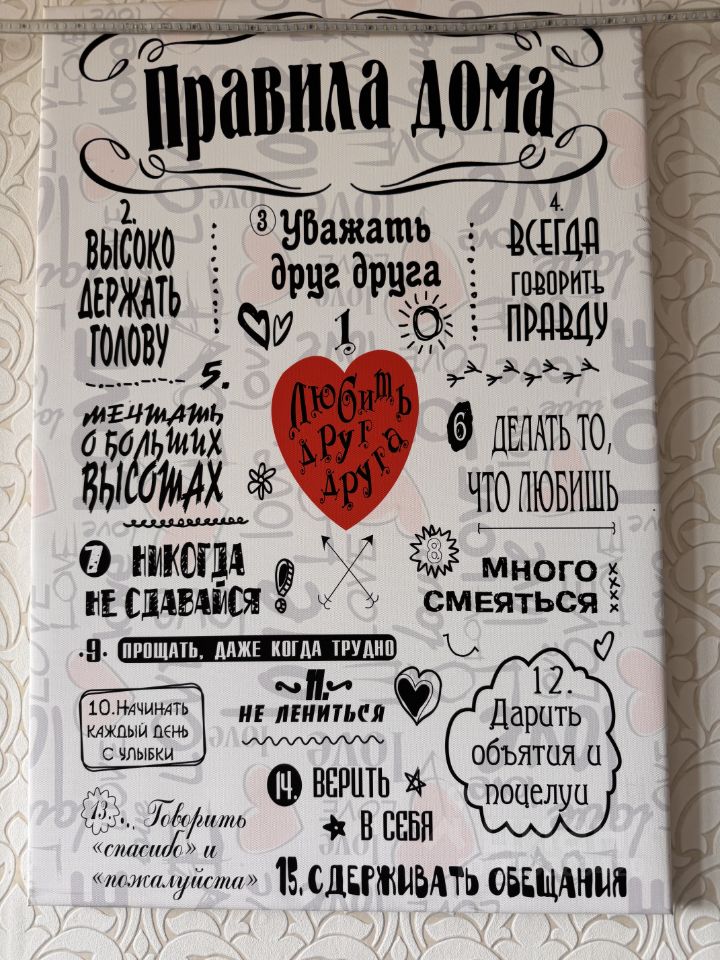 Правила дома
2.
ВЫСОКО
ДЕРЖАТЬ
ГОЛОВУ
3 Уважать
друг друга
4.
ВСЕГДА
ГОВОРИТЬ
ПРАВДУ
1
Любить
друг
друга
5.
МЕЧТАТЬ
О БОЛЬШИХ
ВЫСОТАХ
6 ДЕЛАТЬ ТО,
ЧТО ЛЮБИШЬ
7 НИКОГДА
НЕ СДАВАЙСЯ
8 МНОГО
СМЕЯТЬСЯ
·9· ПРОЩАТЬ, ДАЖЕ КОГДА ТРУДНО
10.НАЧИНАТЬ
КАЖДЫЙ ДЕНЬ
С УЛЫБКИ
~11.~
НЕ ЛЕНИТЬСЯ
12.
Дарить
объятия и
поцелуи
13... Говорить
«спасибо» и
«пожалуйста»
14. ВЕРИТЬ
В СЕБЯ
15. СДЕРЖИВАТЬ ОБЕЩАНИЯ